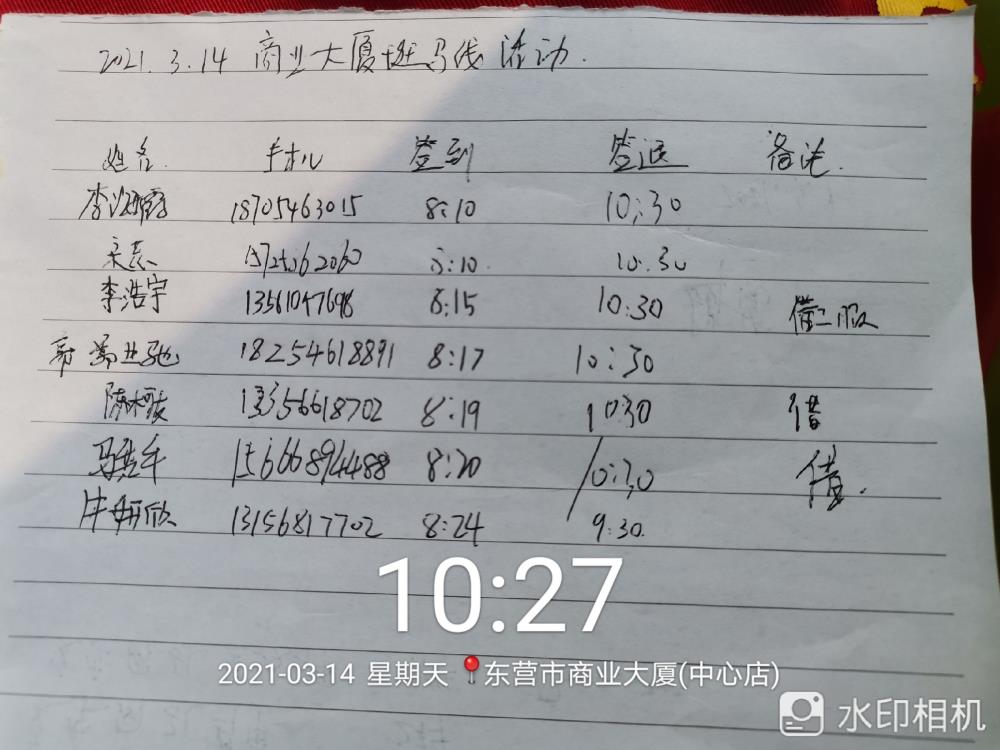 2021.3.14 商业大厦斑马线活动.
姓名 手机 签到 签退 备注.
李 18705463015 8:10 10:30
宋 8:10 10:30
李浩宇 13561047698 8:15 10:30 借工服
业驰 18254618891 8:17 10:30
陈 13356618702 8:19 10:30 借
马 15666894488 8:20 10:30 借.
牛妍欣 13156817702 8:24 9:30
10:27
2021-03-14 星期天 东营市商业大厦(中心店)
水印相机